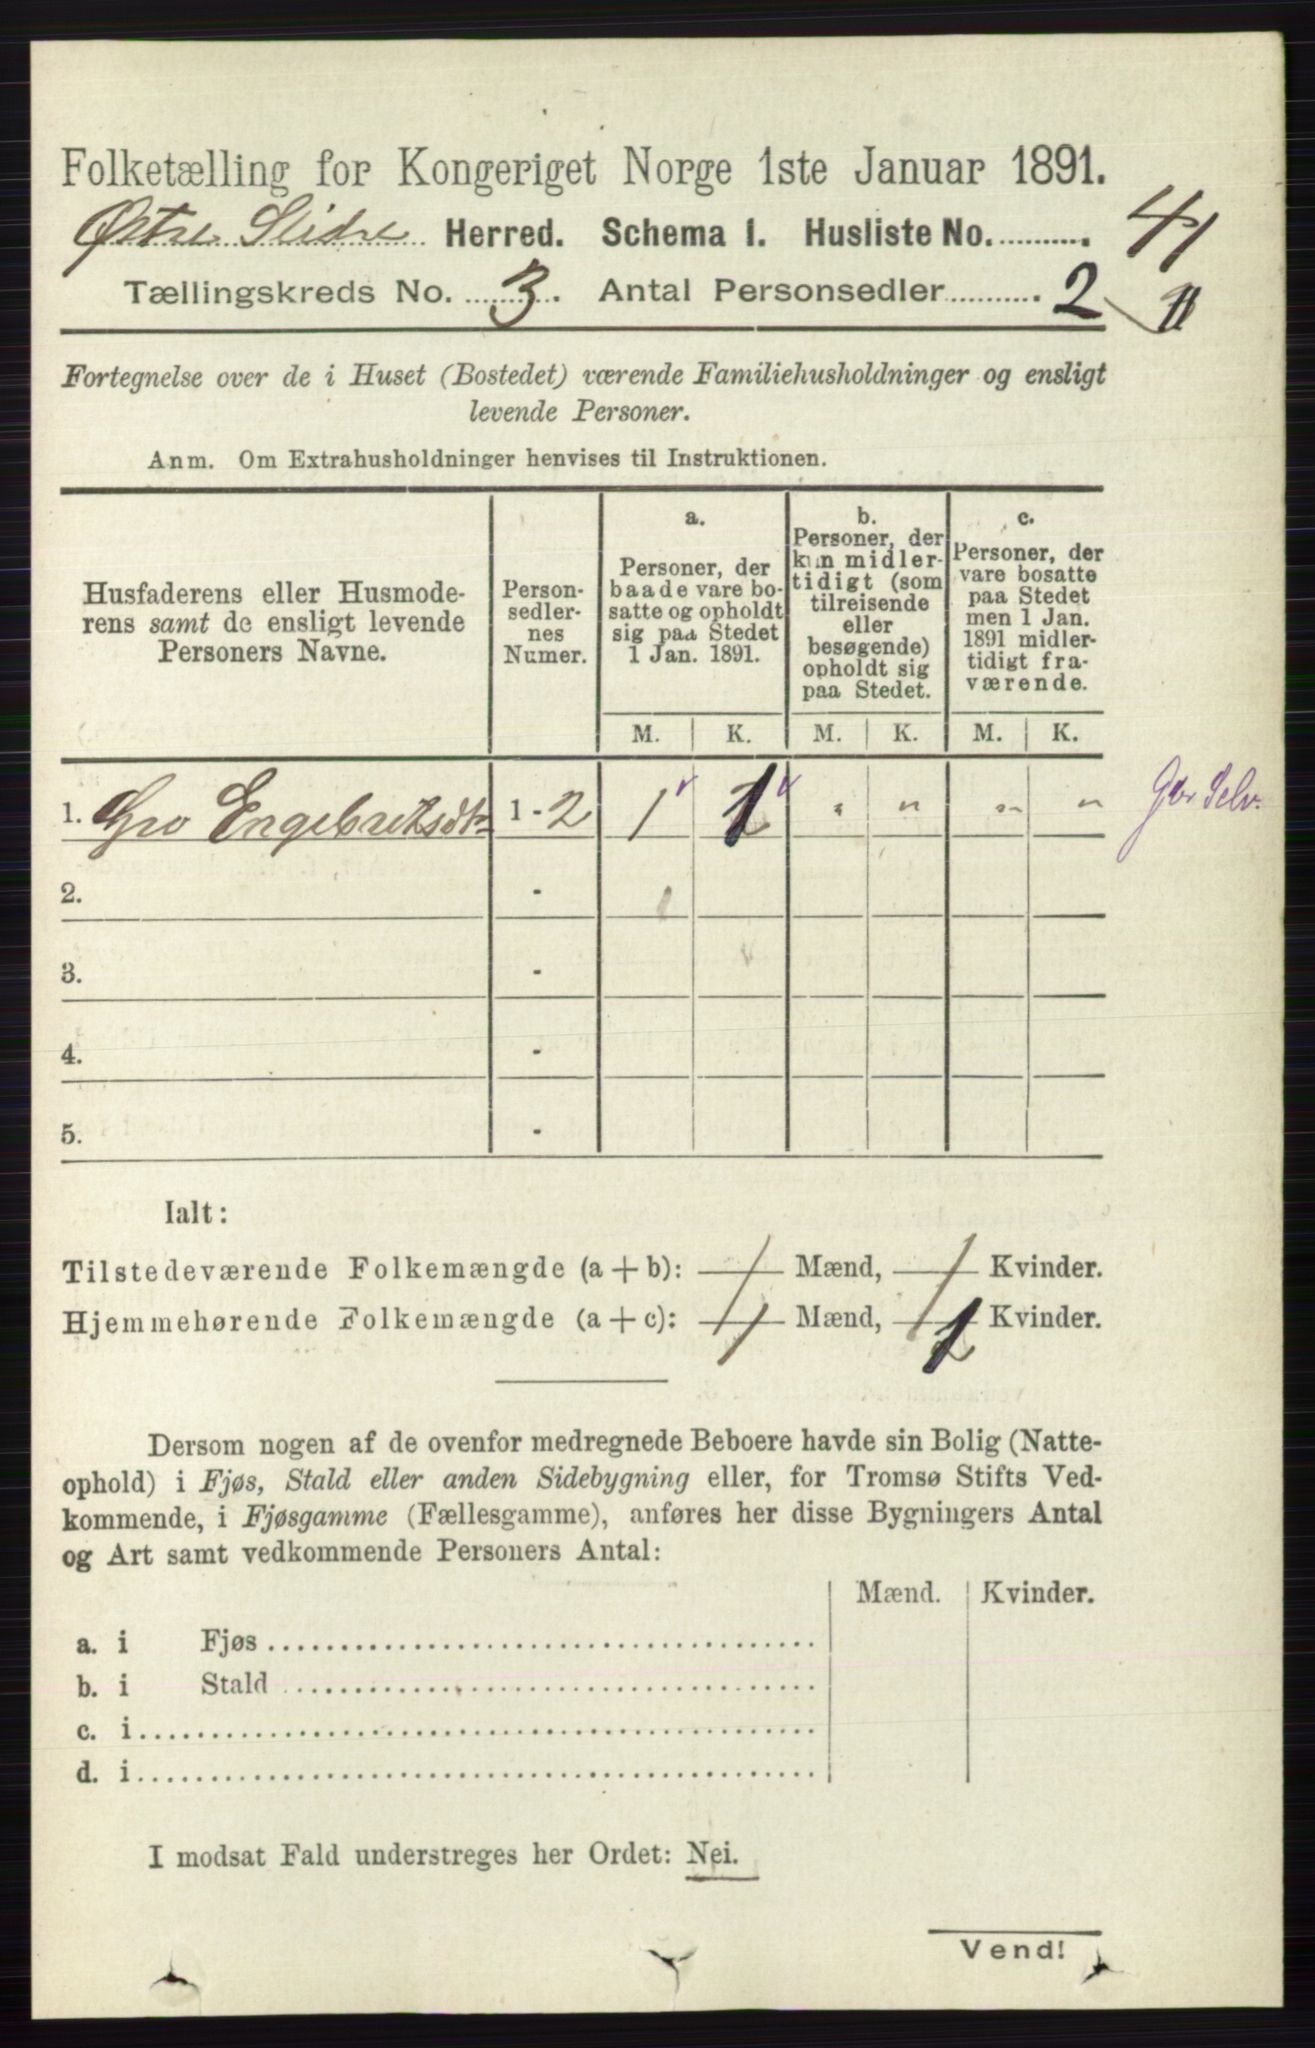 Folketælling for Kongeriget Norge 1ste Januar 1891.
Østre Slidre Herred. Schema I. Husliste No. 41
Tællingskreds No. 3. Antal Personsedler 2
Fortegnelse over de i Huset (Bostedet) værende Familiehusholdninger og ensligt
levende Personer.
Anm. Om Extrahusholdninger henvises til Instruktionen.
Husfaderens eller Husmode-
rens samt de ensligt levende
Personers Navne.
Person-
sedler-
nes
Numer.
a.
Personer, der
baade vare bo-
satte og opholdt
sig paa Stedet
1 Jan. 1891.
b.
Personer, der
kun midler-
tidigt (som
tilreisende
eller
besøgende)
opholdt sig
paa Stedet.
c.
Personer, der
vare bosatte
paa Stedet
men 1 Jan.
1891 midler-
tidigt fra-
værende.
M. K. M. K. M. K.
1. Gro Engebretsdtr 1 - 2 1 1 " " " "
2. -
3. -
4. -
5. -
Ialt:
Tilstedeværende Folkemængde (a + b): 1 Mænd, 1 Kvinder.
Hjemmehørende Folkemængde (a + c): 1 Mænd, 1 Kvinder.
Dersom nogen af de ovenfor medregnede Beboere havde sin Bolig (Natte-
ophold) i Fjøs, Stald eller anden Sidebygning eller, for Tromsø Stifts Ved-
kommende, i Fjøsgamme (Fællesgamme), anføres her disse Bygningers Antal
og Art samt vedkommende Personers Antal:
Mænd. Kvinder.
a. i Fjøs
b. i Stald
c. i
d. i
I modsat Fald understreges her Ordet: Nei.
Vend!